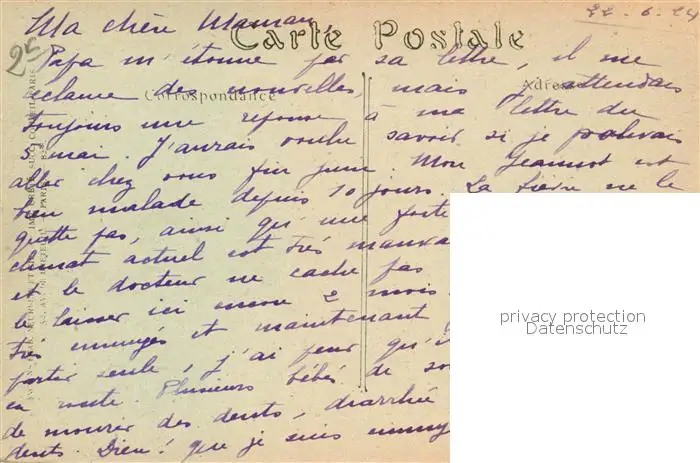 22-6-24
Ma chère Maman,
Carte Postale
25
Papa m'étonne par sa lettre, il me
réclame des nouvelles, mais j'attendais
Correspondance
Adresse
toujours une réponse à ma lettre du
5 mai. J'aurais voulu savoir si je pouvais
aller chez vous fin juin. Mon Jeannot est
bien malade depuis 10 jours. La fièvre ne le
quitte pas, ainsi qu'une forte
climat actuel est très mauva
et le docteur ne cache pas
le laisser ici encore 2 mois.
très ennuyés et maintenant
partir seule, j'ai peur qu'i
en route. Plusieurs bébés de so
de mourir des dents, diarrhée
dents. Dieu! que je suis ennuy
privacy protection
Datenschutz